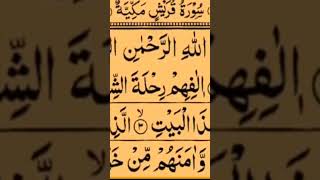 سُوْرَةُ قُرَيْشٍ مَكِّيَّةٌ
اللهِ الرَّحْمٰنِ
اٖلٰفِهِمْ رِحْلَةَ
الْبَيْتِ ۙ۳
وَّاٰمَنَهُمْ مِّنْ